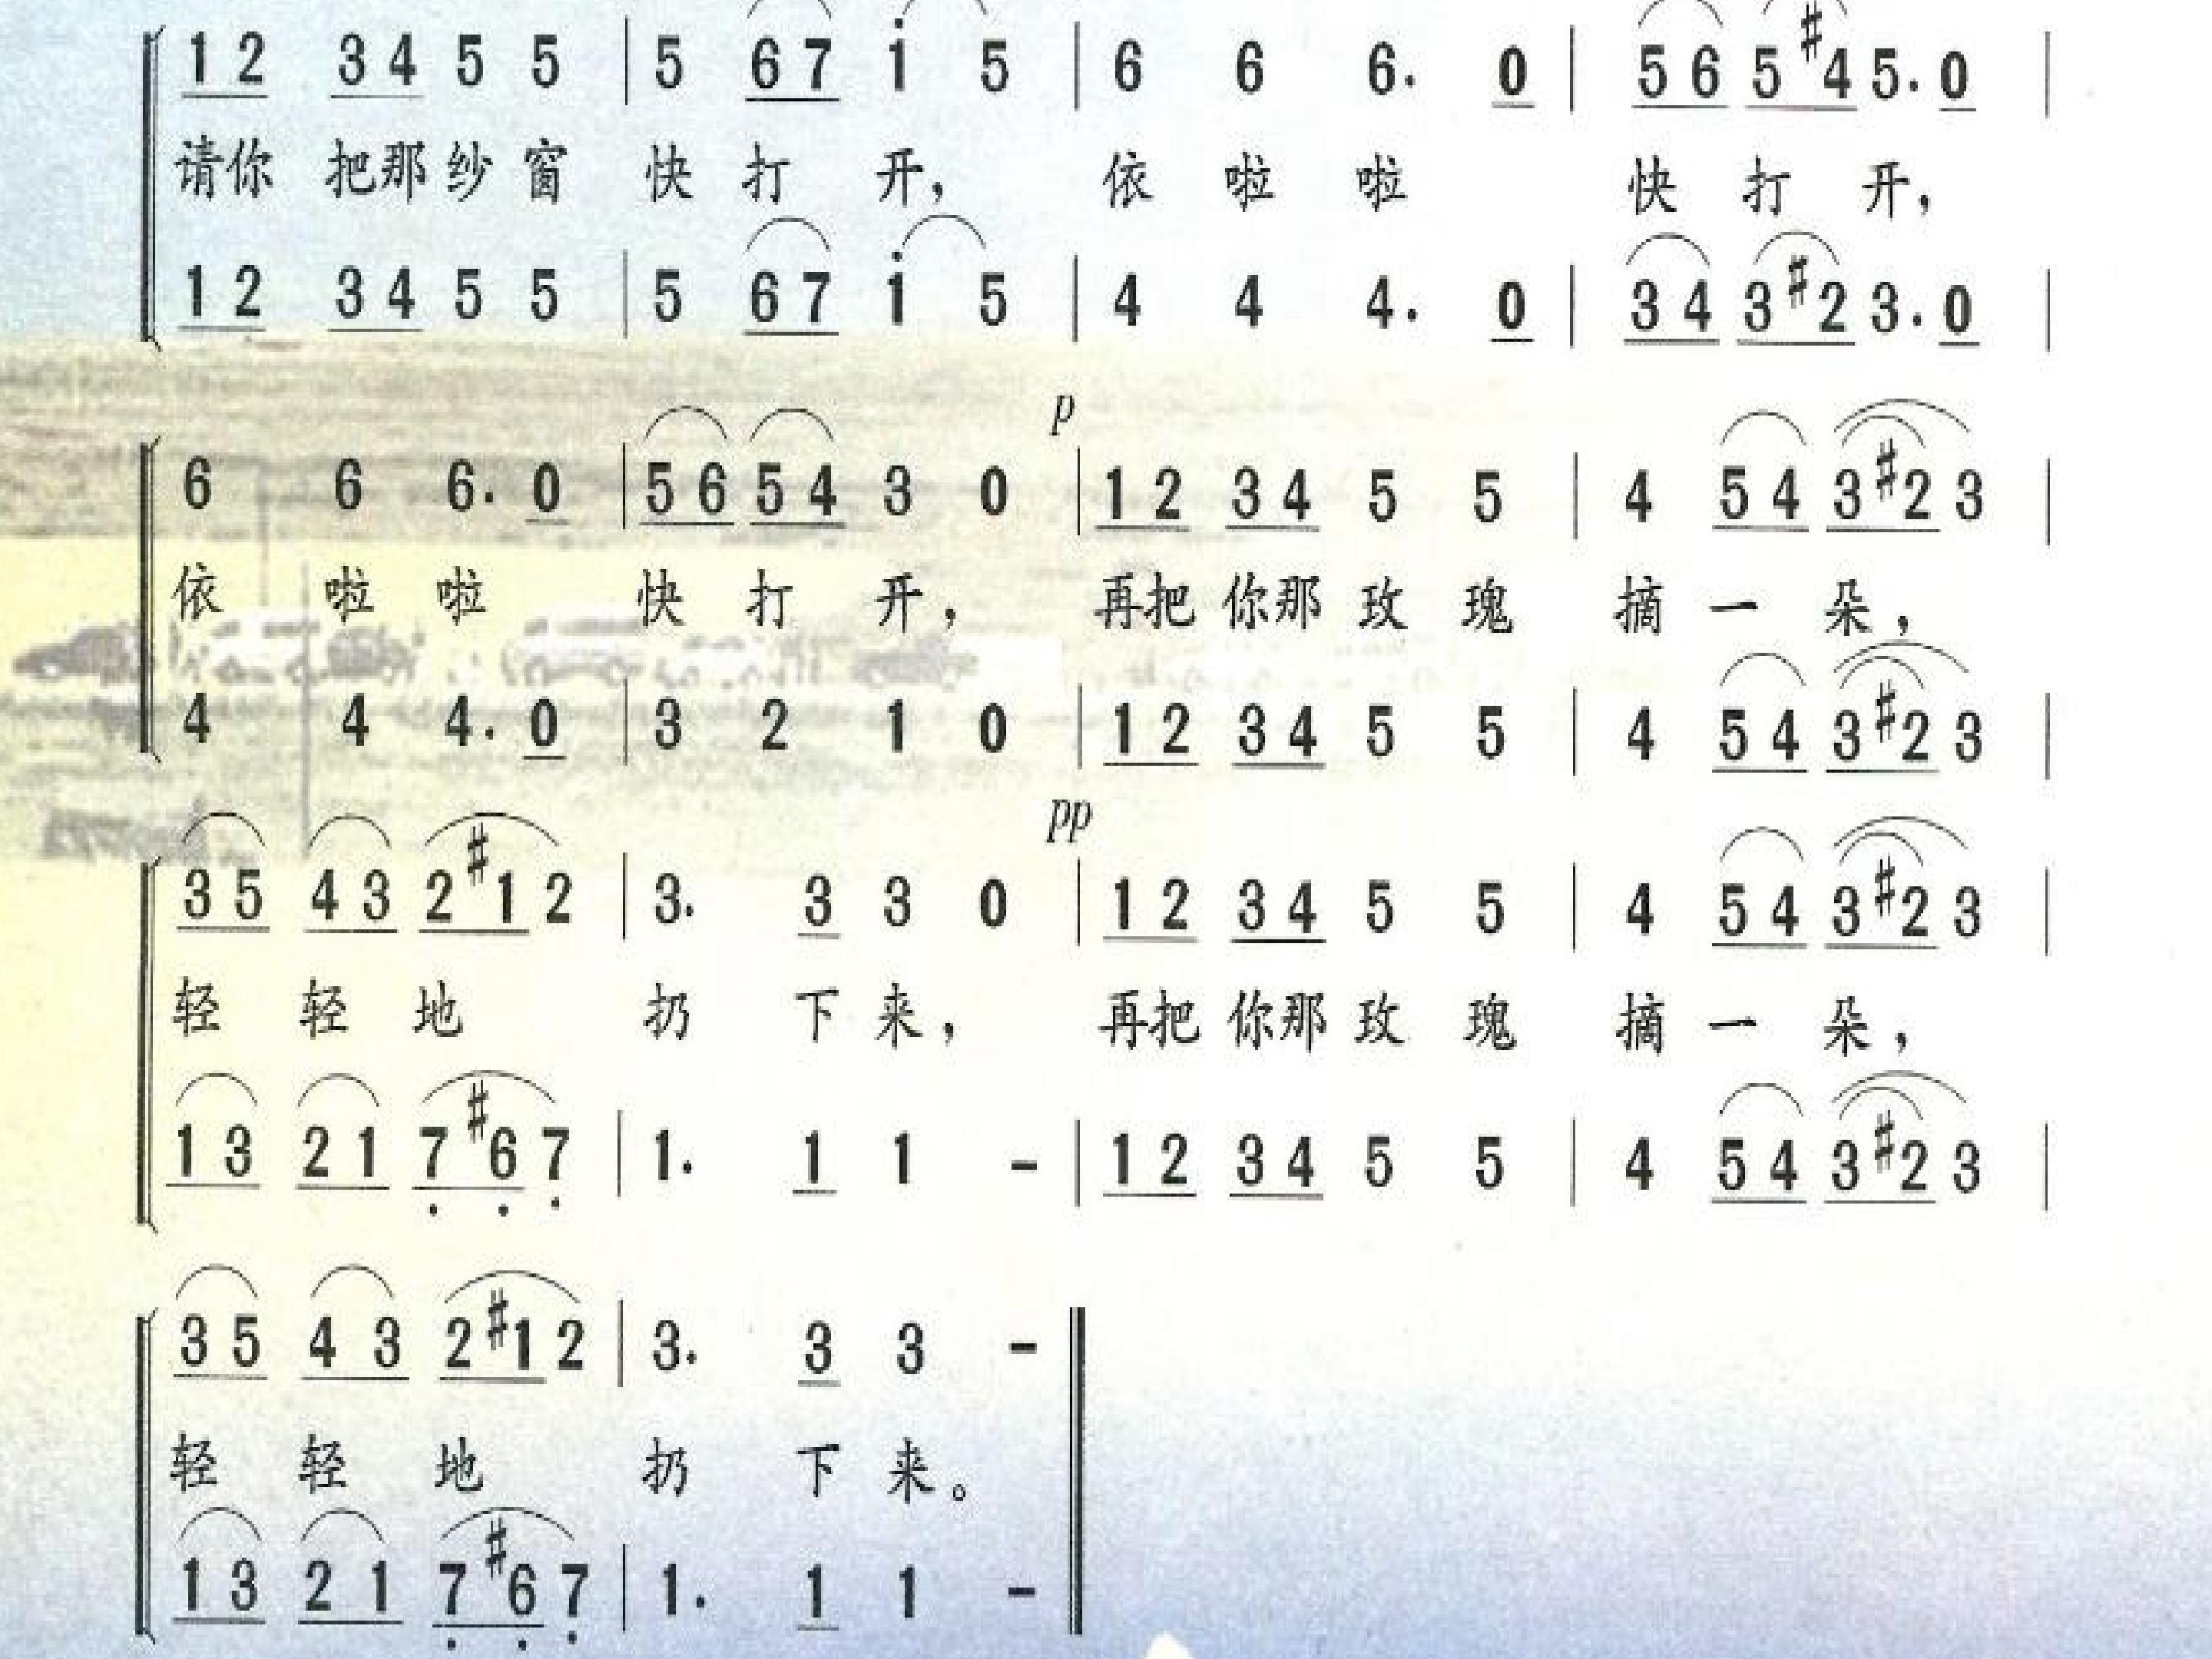 1 2 3 4 5 5 | 5 6 7 i 5 | 6 6 6. 0 | 5 6 5 #4 5. 0 |
请你 把那 纱 窗 快 打 开， 依 啦 啦 快 打 开，
1 2 3 4 5 5 | 5 6 7 i 5 | 4 4 4. 0 | 3 4 3 #2 3. 0 |
p
6 6 6. 0 | 5 6 5 4 3 0 | 1 2 3 4 5 5 | 4 5 4 3 #2 3 |
依 啦 啦 快 打 开， 再把 你那 玫 瑰 摘 一 朵，
4 4 4. 0 | 3 2 1 0 | 1 2 3 4 5 5 | 4 5 4 3 #2 3 |
pp
3 5 4 3 2 #1 2 | 3. 3 3 0 | 1 2 3 4 5 5 | 4 5 4 3 #2 3 |
轻 轻 地 扔 下 来， 再把 你那 玫 瑰 摘 一 朵，
1 3 2 1 7 #6 7 | 1. 1 1 - | 1 2 3 4 5 5 | 4 5 4 3 #2 3 |
3 5 4 3 2 #1 2 | 3. 3 3 - ‖
轻 轻 地 扔 下 来。
1 3 2 1 7 #6 7 | 1. 1 1 - ‖